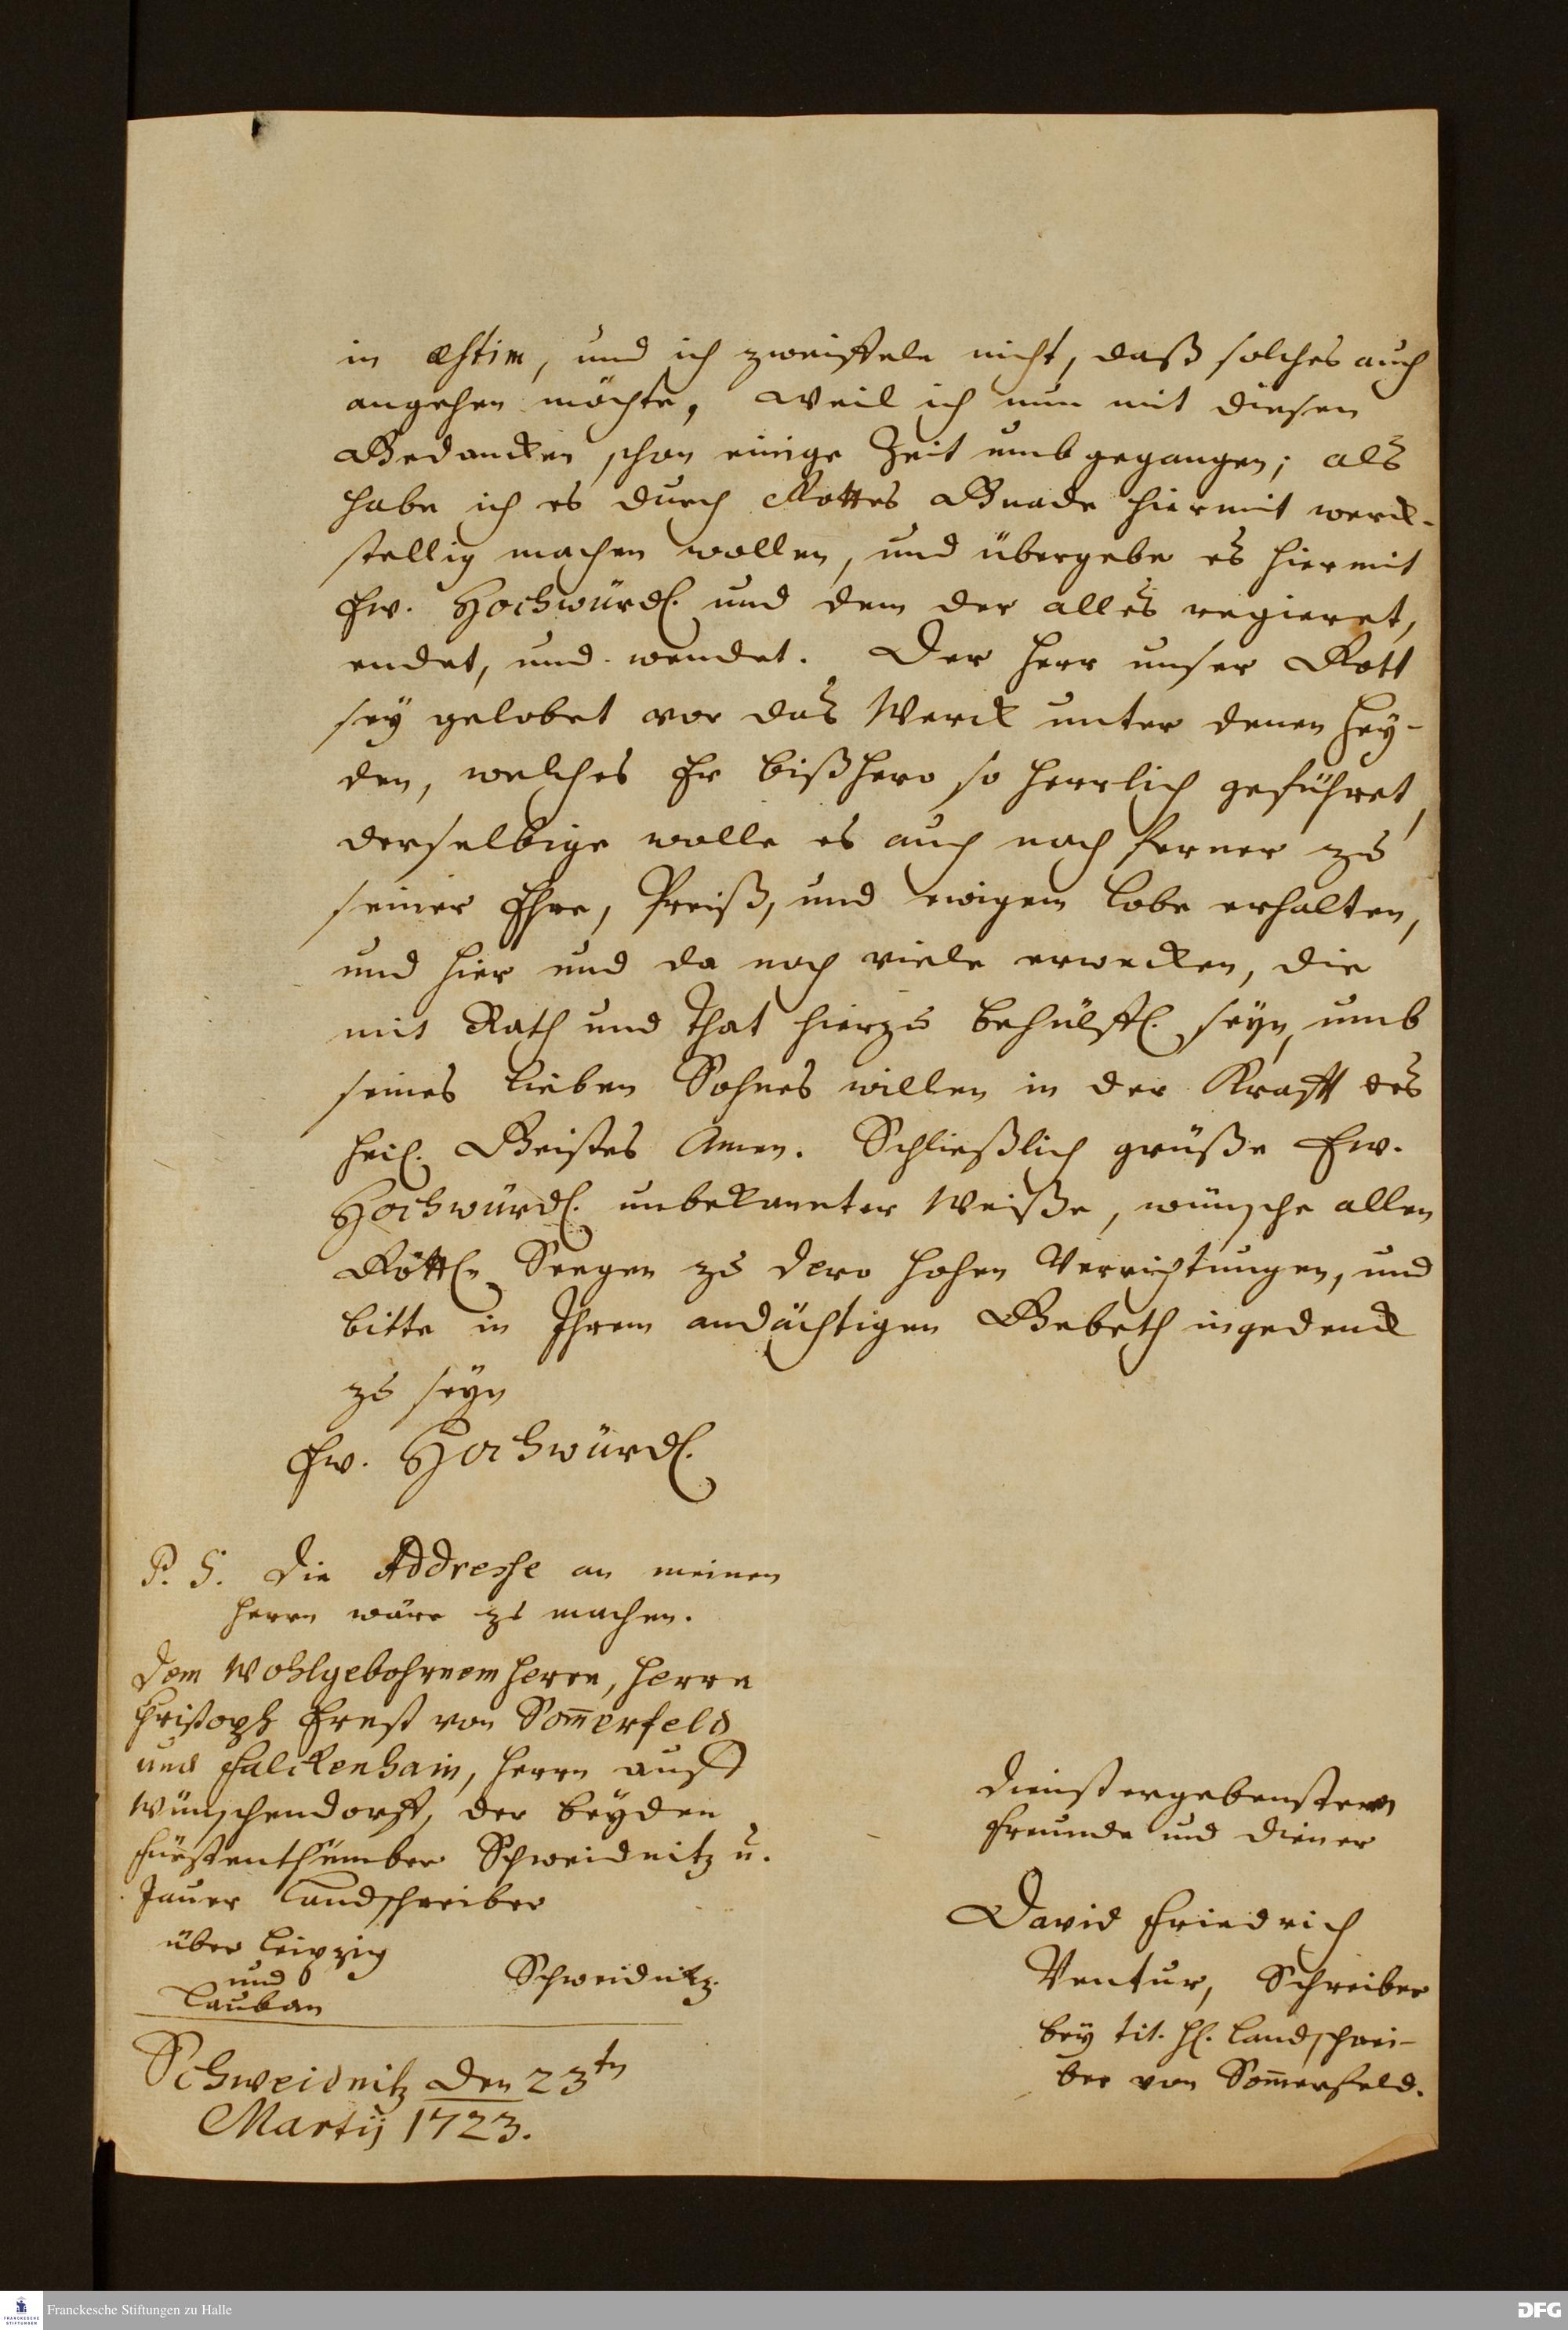 in æstim, und ich zweiffele nicht, daß solches auch
angehen möchte, weil ich nun mit diesen
Gedancken schon einige Zeit umbgegangen; als
habe ich es durch Gottes Gnade hiermit werck-
stellig machen wollen, und übergebe es hiermit
Ew. Hochwürdl. und dem der alles regieret,
endet, und wendet. Der Herr unser Gott
sey gelobet vor das Werck unter denen Hey-
den, welches Er bißhero so herrlich geführet,
derselbige wolle es auch noch ferner zu
seiner Ehre, Preiß, und ewigem Lobe erhalten,
und hier und da noch viele erwecken, die
mit Rath und That hierzu behülffl. seyn, umb
seines lieben Sohnes willen in der Krafft des
Heil. Geistes Amen. Schließlich grüße Ew.
Hochwürdl. unbekannter Weiße, wünsche allen
Göttln Seegen zu dero hohen Verrichtungen, und
bitte in Ihrem andächtigen Gebeth ingedenck
zu seyn
Ew. Hochwürdl.
P. S. Die Addresse an meinen
Herrn wäre zu machen.
Dem Wohlgebohrnem Herrn, Herrn
Christoph Ernst von Som̄erfeld
und Falckenhain, Herrn auff
Wünschendorff, der beyden
Fürstenthümber Schweidnitz u.
Jauer Landschreiber
über Leipzig
und
Lauban
Schweidnitz.
Schweidnitz den 23tn
Martij 1723.
dienstergebenstern
Freunde und Diener
David Friedrich
Ventur, Schreiber
bey tit. Hl. Landschrei-
ber von Som̄erfeld.
Franckesche Stiftungen zu Halle
DFG